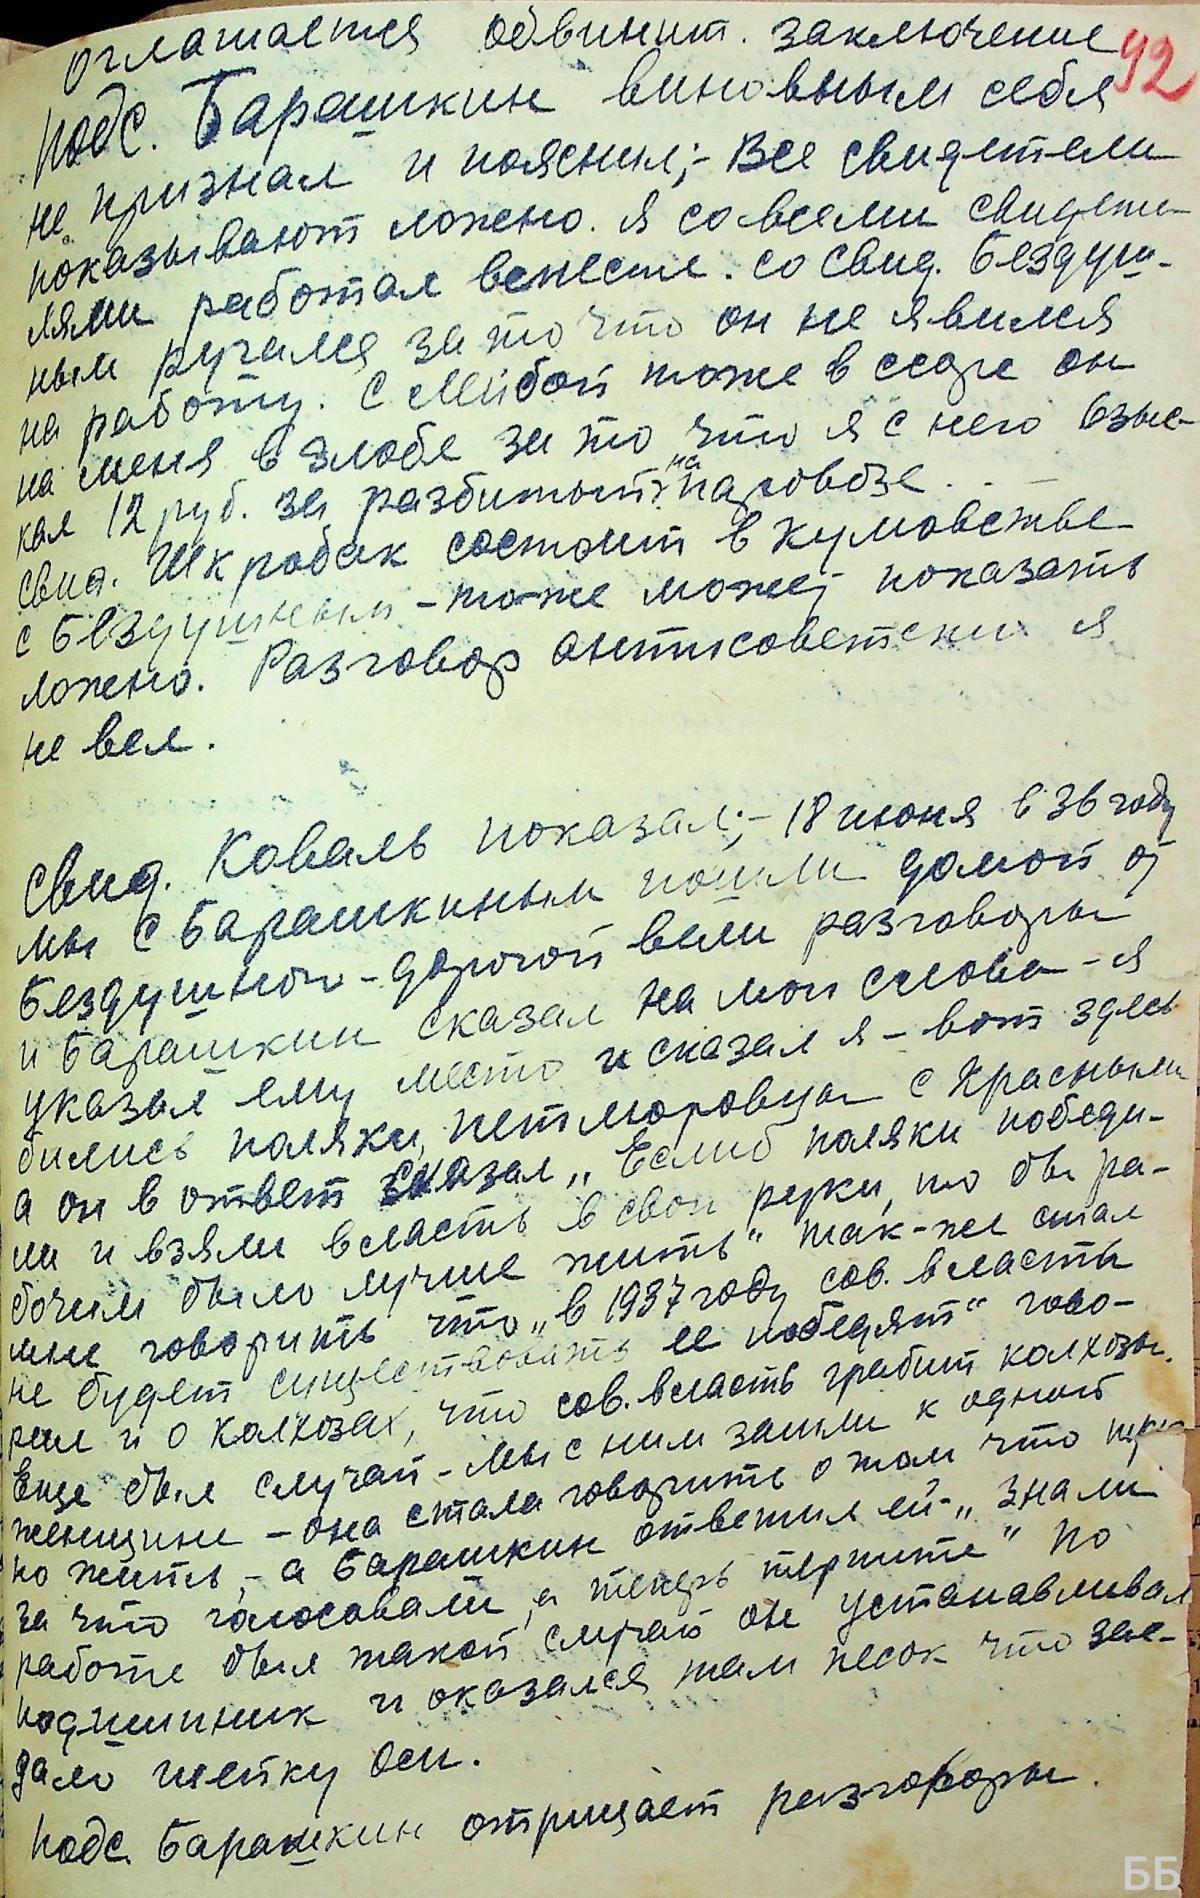 оглашается обвинит. заключение
92
Подс. Барашкин виновным себя
не признал и пояснил;- Все свидетели
показывают ложно. Я со всеми свидете-
лями работал вместе. Со свид. Бездуш-
ным ругался за то что он не явился
на работу. С Мигбой тоже в ссоре он
на меня в злобе за то, что я с него взыс-
кал 12 руб. за разбитый на паровозе
Свид. Шкробак состоит в кумовстве
с Бездушным - тоже может показать
ложно. Разговор антисоветский я
не вел.
Свид. Коваль показал;- 18 июня в 36 году
мы с Барашкиным пошли домой от
Бездушного - дорогой вели разговоры
и Барашкин сказал на мои слова - я
указал ему место и сказал я - вот здесь
бились поляки, петлюровцы с Красными
а он в ответ сказал „Еслиб поляки победи-
ли и взяли власть в свои руки, то бы ра-
бочим было лучше жить" так-же стал
мне говорить что „в 1937 году сов. власть
не будет существовать ее победят" гово-
рил и о колхозах, что сов. власть грабит колхозы.
Еще был случай - мы с ним зашли к одной
женщине - она стала говорить о том что
но жить, - а Барашкин ответил ей - „знали
за что голосовали, а теперь терпите" По
работе был такой случай он устанавливал
подшипник и оказался там песок что зае-
дало шейку оси.
Подс. Барашкин отрицает разговоры.
ББ